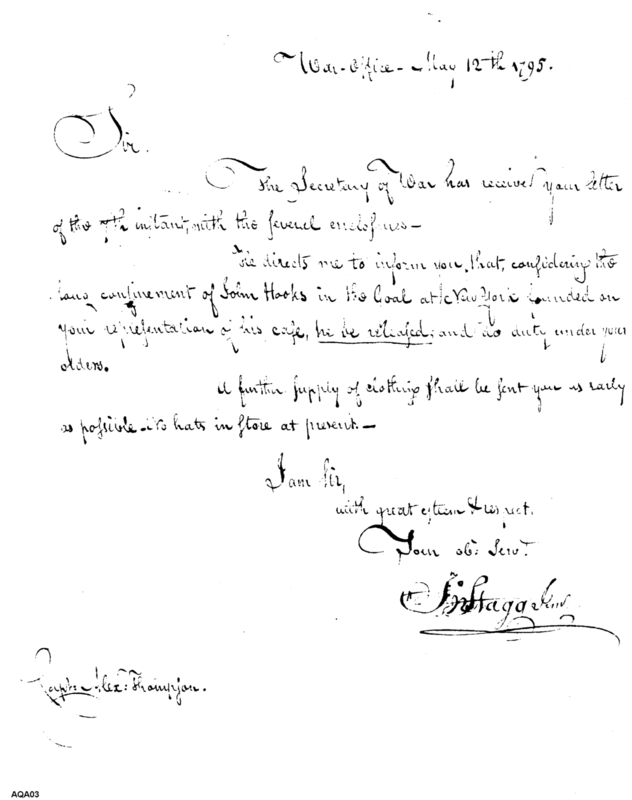 War-Office - May 12th 1795.
Sir.
The Secretary of War has received your letter
of the 7th instant, with the several enclosures -
He directs me to inform you, that, considering the
long confinement of John Hooks in the Goal at New York founded on
your representation of his case, he be released, and do duty under your
orders.
A further supply of clothing shall be sent you as early
as possible - No hats in store at present. -
I am Sir,
with great esteem & respect.
Your ob: Servt.
Jno Stagg Junr
Captn Alexr: Thompson.
AQA03